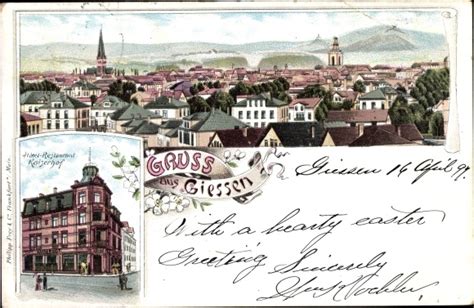 Hotel-Restaurant
Kaiserhof
Gruss
aus Giessen
Giessen 16 April 97
With a hearty easter
Greeting Sincerely
Philipp Frey & C., Frankfurt a. Main.